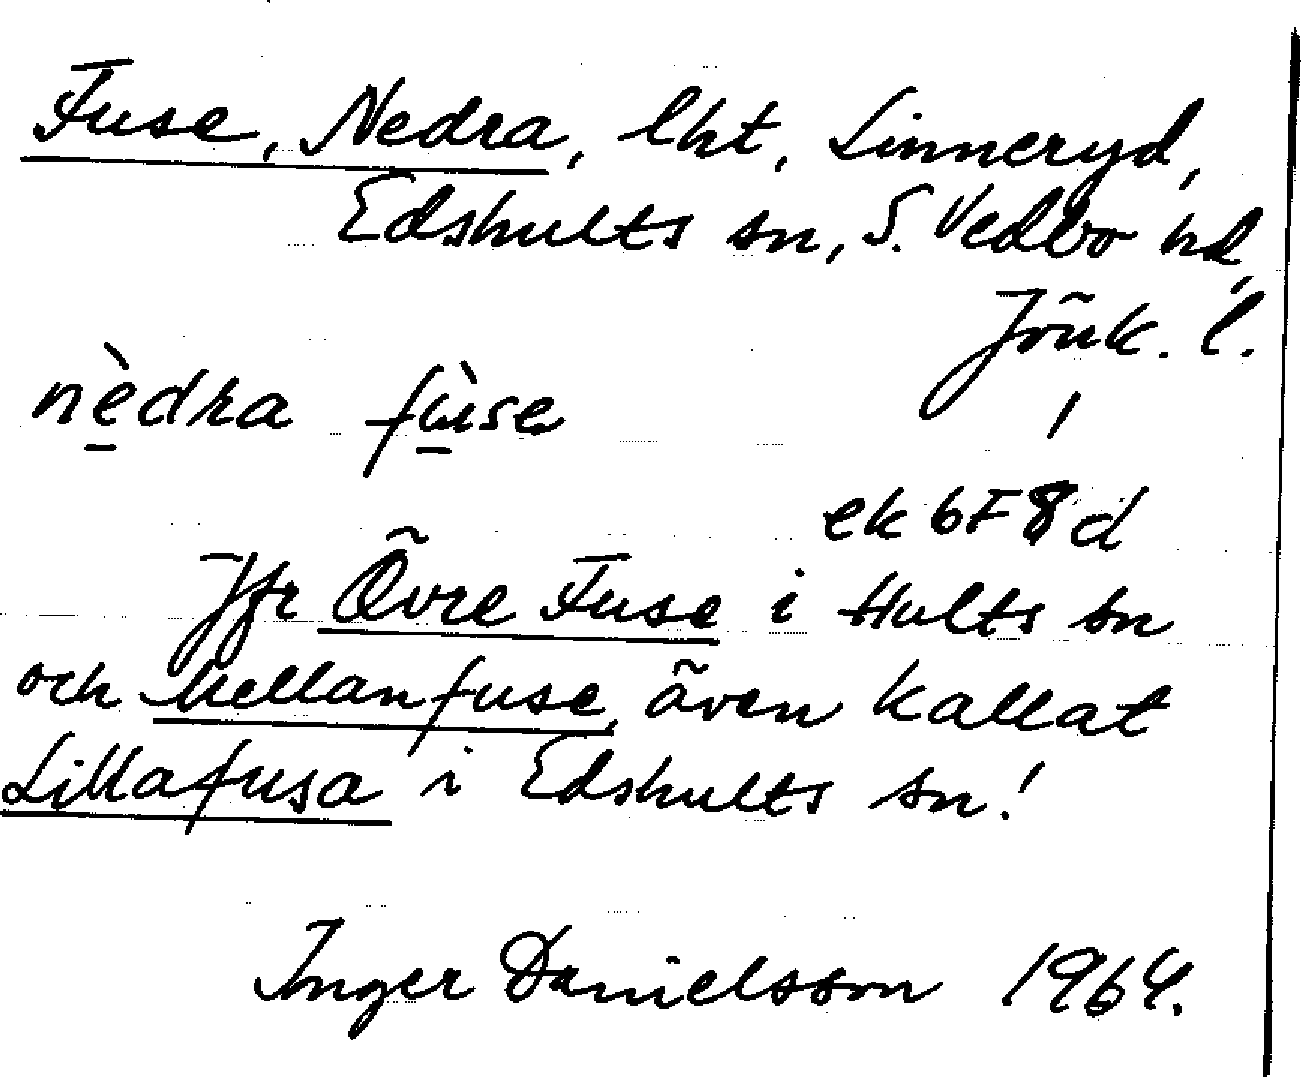 Fuse, Nedra, lht, Linneryd,
Edshults sn, S. Vedbo hd,
Jönk. l.
nè̱dra fù̱se
ek 6F8d
Jfr Övre Fuse i Hults sn
och Mellanfuse, även kallat
Lillafusa i Edshults sn!
Inger Danielsson 1964.